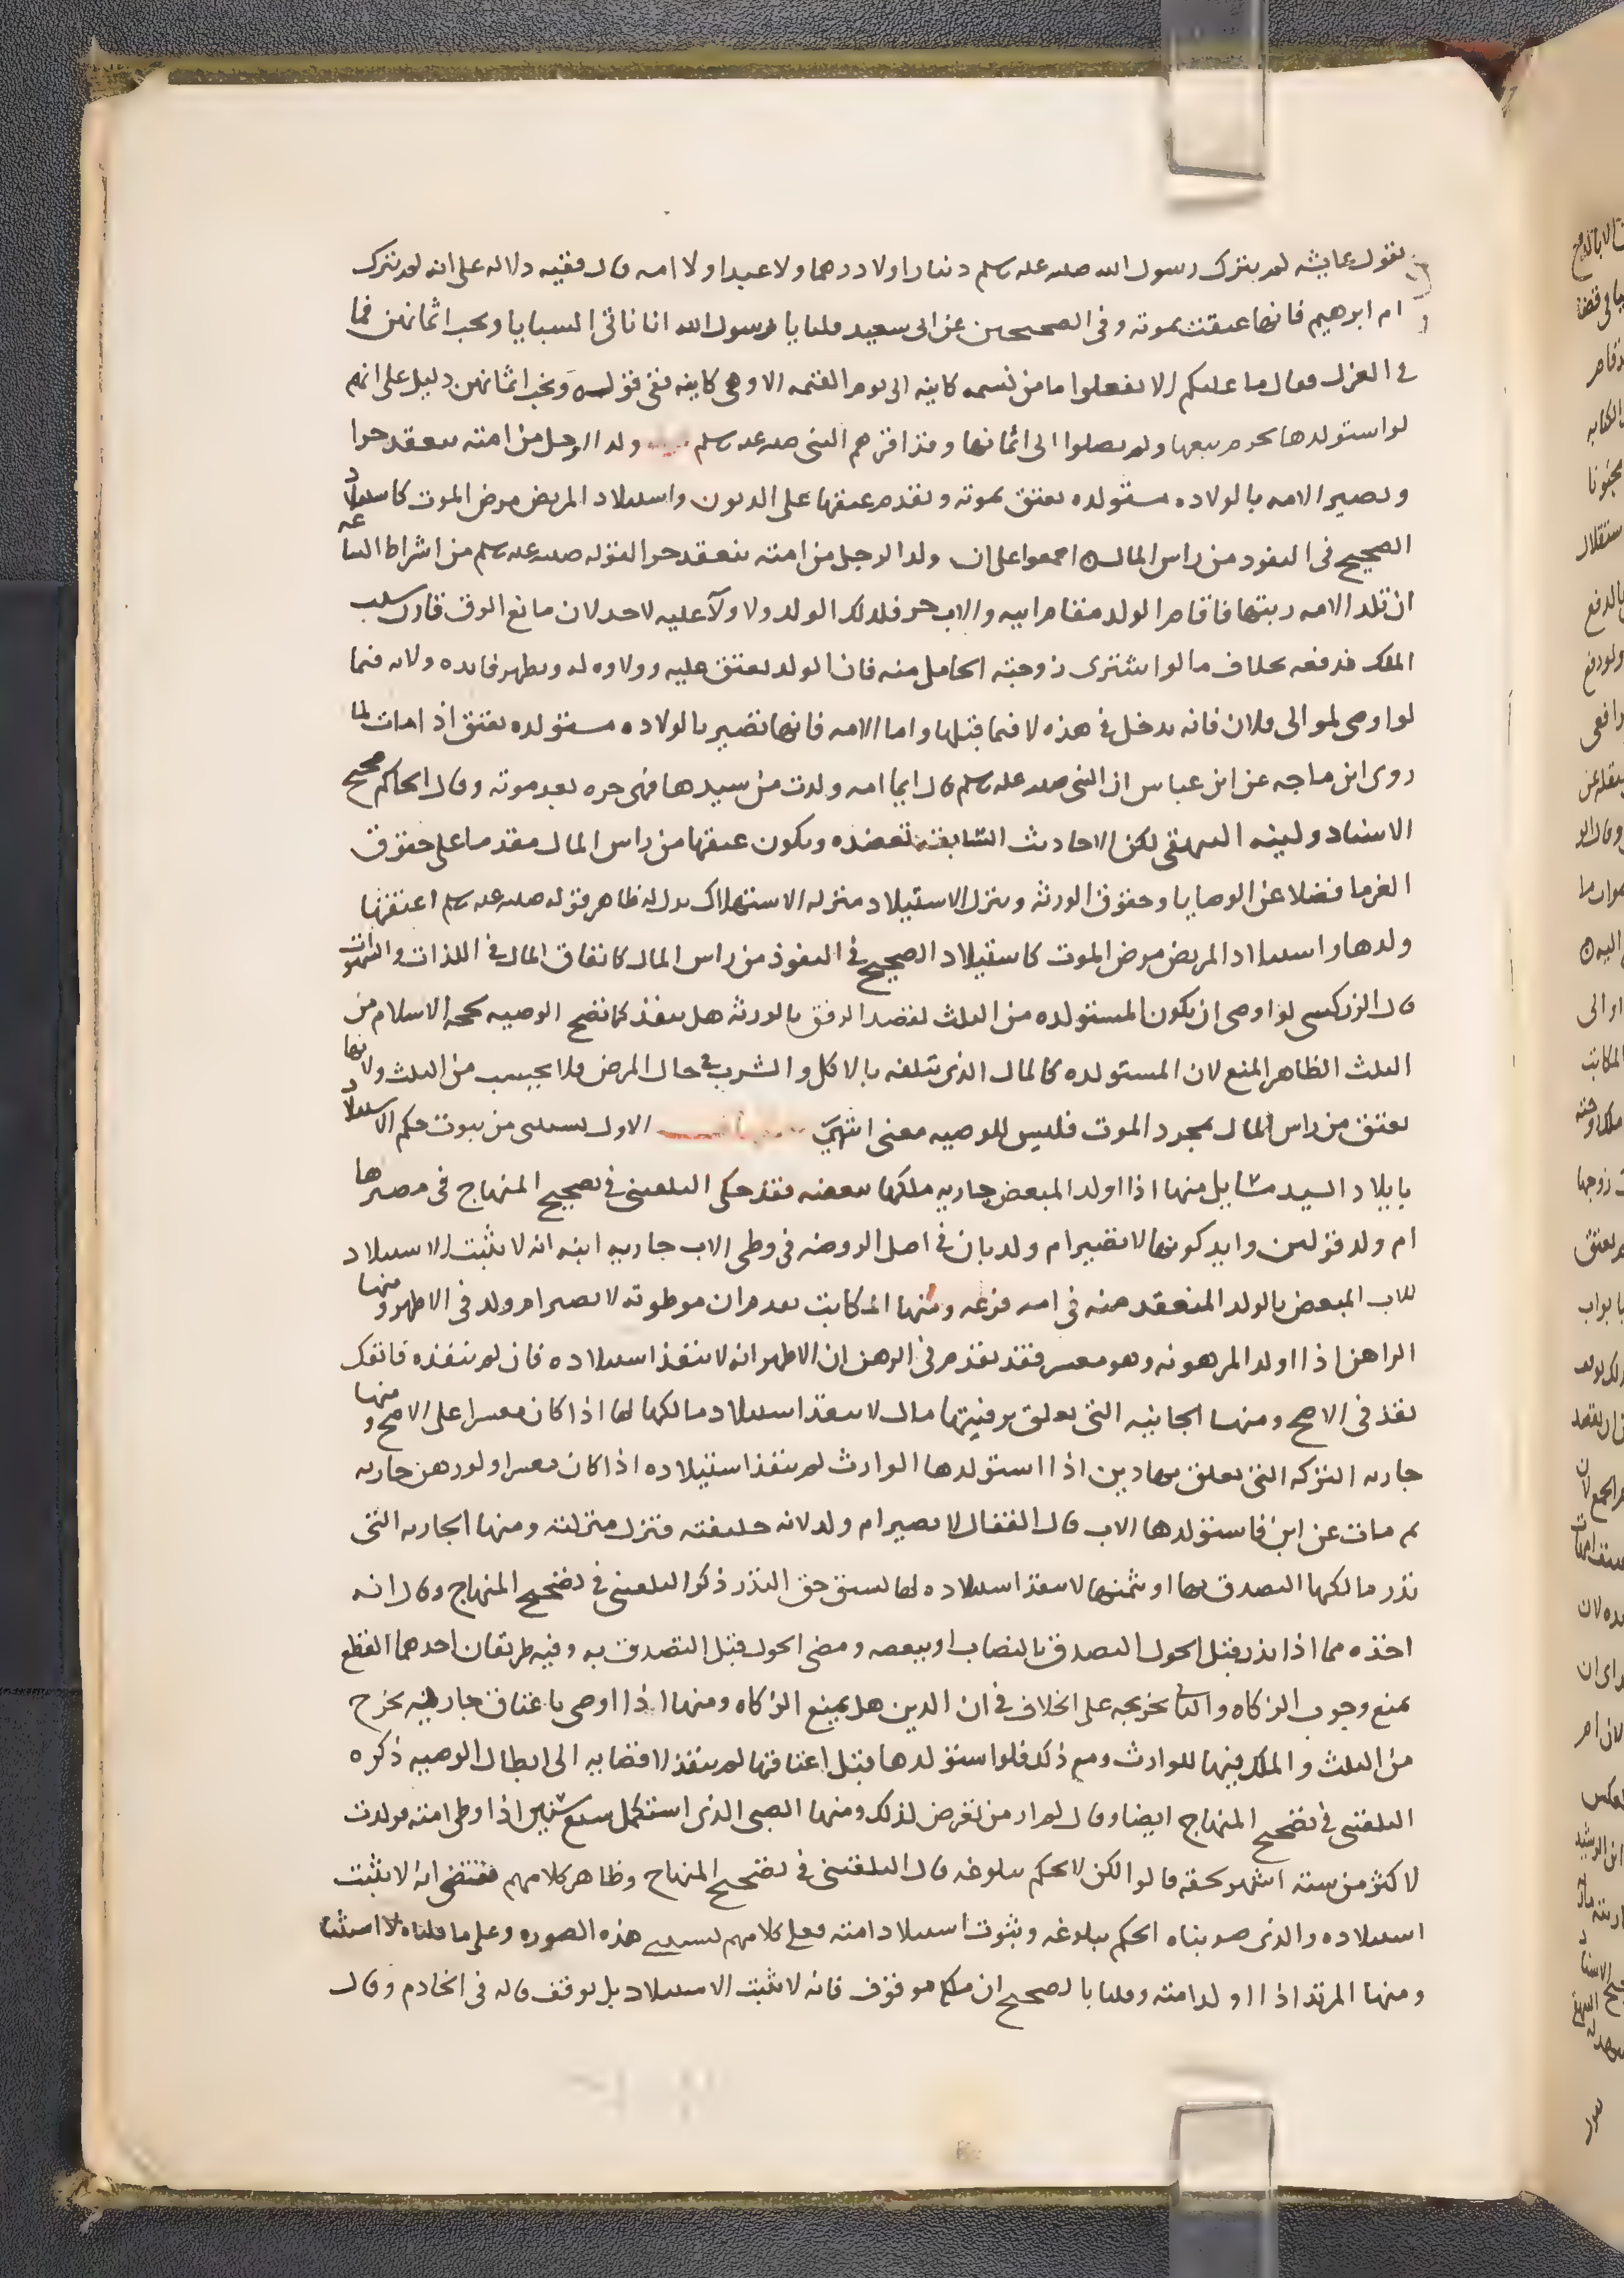 بقول عايشه لم يترك رسول الله صلى الله عليه وسلم دينارا ولا درهما ولا عبدا ولا امه قال ففيه دلاله على انه لم يترك
ام ابرهيم فانها عتقت بموته وفى الصحيحين عن ابى سعيد قلنا يا رسول الله انا ناتى السبايا ونحب اثمانهن فما
فى العزل فقال ما عليكم الا تفعلوا ما من نسمه كاينه الى يوم القيمه الا وهى كاينه ففى قولـه ونحب اثمانهن دليل على انهم
لو استولدها بحرم بيعها ولم يصلوا الى اثمانها وقد اقرهم النبى صلى الله عليه وسلم ولد الرجل من امته ينعقد حرا
وتصير الامه بالولاده مستولده تعتق بموته ويقدم عتقها على الديون واستيلاد المريض مرض الموت كاستيلاد
الصحيح فى النفود من راس المالـ اجمعوا على ان ولد الرجل من امته ينعقد حرا لقوله صلى الله عليه وسلم من اشراط الساعه
ان تلد الامه ربتها فاقام الولد مقام ابيه والاب حر فكذلك الولد ولا ولآ عليه لاحد لان مانع الرق قارن سبب
الملك فدفعه بخلاف ما لو اشترى زوجته الحامل منه فان الولد يعتق عليه وولاوه له ويظهر فايده ولايه فيما
لو اوصى لموالى فلان فانه يدخل فى هذه لا فيما قبلها واما الامه فانها تصير بالولاده مستولده تعتق اذا مات لما
روى ابن ماجه عن ابن عباس ان النبى صلى الله عليه وسلم قال ايما امه ولدت من سيدها فهى حره بعد موته وقال الحاكم صحيح
الاسناد ولينه البيهقى لكن الاحاديث السابقة تعضده ويكون عتقها من راس المال مقدما على حقوق
الغرما فضلا عن الوصايا وحقوق الورثه وينزل الاستيلاد منزله الاستهلاك يدل له ظاهر قوله صلى الله عليه وسلم اعتقها
ولدها واستيلاد المريض مرض الموت كاستيلاد الصحيح فى النفوذ من راس المال كانفاق المال فى اللذات والشهوات
قال الزركسى لو اوصى ان تكون المستولده من الثلث لقصد الرفق بالورثه هل ينفذ كما تصح الوصيه بحجه الاسلام من
الثلث الظاهر المنع لان المستولده كالمال الذى يتلفه بالاكل والشرب فى حال المرض فلا يحسب من الثلث ولانها
تعتق من راس المال بمجرد الموت فليس للوصيه معنى انتهى الاول يستثنى من ثبوت حكم الاستيلاد
بايلاد السيد مسايل منها اذا اولد المبعض جاريه ملكها ببعضه فقد حكى البلقينى فى تصحيح المنهاج فى مصيرها
ام ولد قولين وايد كونها لا تصير ام ولد بان فى اصل الروضه فى وطى الاب جاريه ابنه انه لا يثبت الاستيلاد
للاب المبعض بالولد المنعقد منه فى امه فرعه ومنها المكاتب تقدم ان موطوته لا تصير ام ولد فى الاظهر ومنها
الراهن اذا اولد المرهونه وهو معسر فقد تقدم فى الرهن ان الاظهر انه لا ينفذ استيلاده فان لم ننفذه فانفك
نفذ فى الاصح ومنها الجانيه التى تعلق برقبتها مال لا ينفذ استيلاد مالكها لها اذا كان معسرا على الاصح ومنها
جاريه التركه التى تعلق بها دين اذا استولدها الوارث لم ينفذ استيلاده اذا كان معسرا ولو رهن جاريه
ثم مات عن ابن فاستولدها الاب قال القفال لا تصير ام ولد لانه خليفته فنزل منزلته ومنها الجاريه التى
نذر مالكها التصدق بها او بثمنها لا ينفذ استيلاده لها لسبق حق النذر ذكره البلقينى فى تصحيح المنهاج وقال انه
اخذه مما اذا نذر قبل الحول التصدق بالنصاب او ببعضه ومضى الحول قبل التصدق به وفيه طريقان احدهما القطع
بمنع وجوب الزكاه والثانى تخريجه على الخلاف فى ان الدين هل يمنع الزكاه ومنها اذا اوصى باعتاق جاريه تخرج
من الثلث والملك فيها للوارث ومع ذلك فلو استولدها قبل اعتاقها لم ينفذ لافضايه الى ابطال الوصيه ذكره
البلقينى فى تصحيح المنهاج ايضا وقال لم ار من تعرض لذلك ومنها الصبى الذى استكمل تسع سنين اذا وطى امته فولدت
لاكثر من سته اشهر لحقه قالوا لكن لا يحكم ببلوغه قال البلقينى فى تصحيح المنهاج وظاهر كلامهم يقتضى انه لا يثبت
استيلاده والذى صوبناه الحكم ببلوغه وثبوت استيلاد امته فعلى كلامهم تستثنى هذه الصوره وعلى ما قلناه لا استثنا
ومنها المرتد اذا اولد امته وقلنا بالصحيح ان ملكه موقوف فانه لا يثبت الاستيلاد بل يوقف قاله فى الخادم وقال